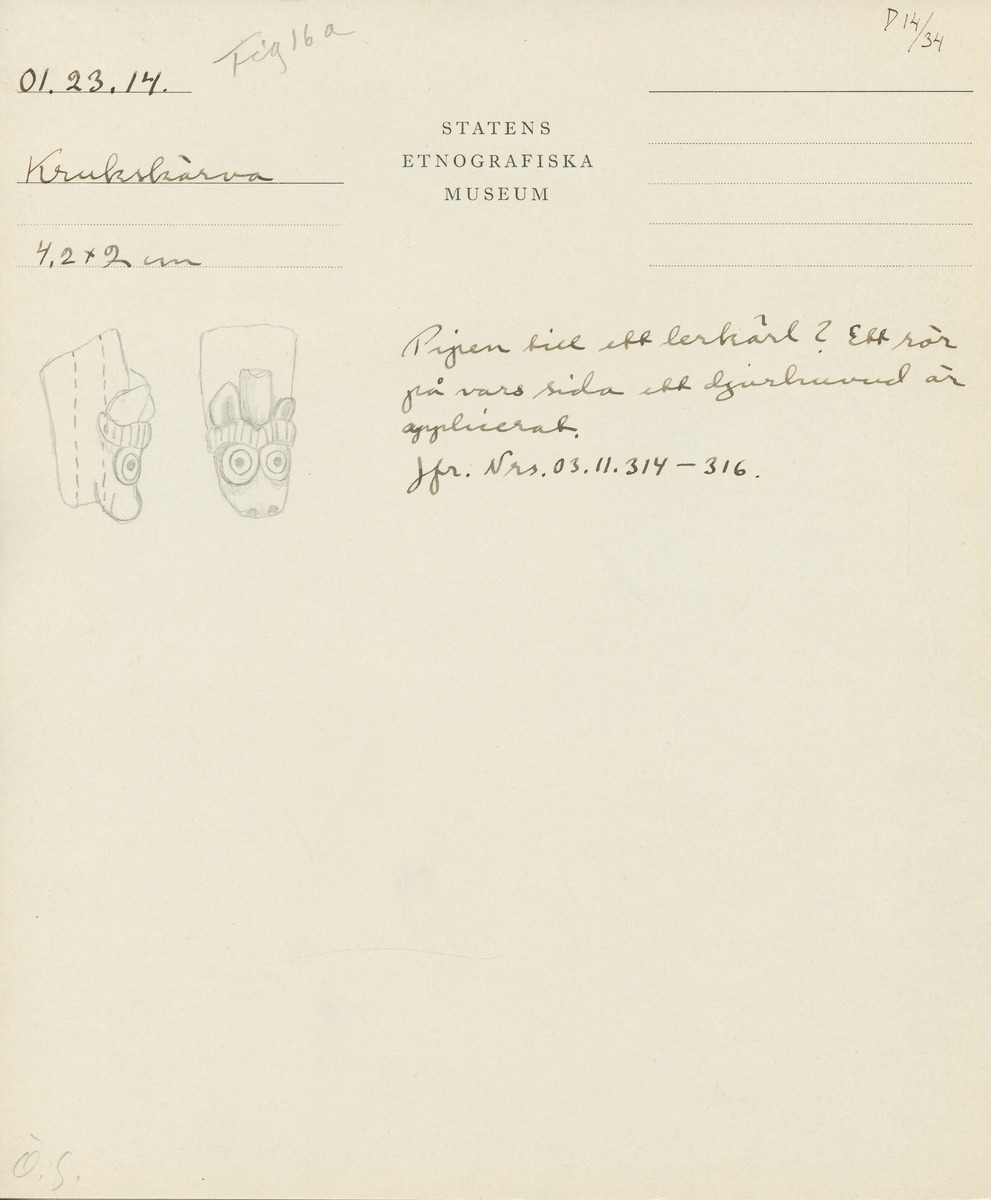 D 14/34
Fig 16 a
01.23.14.
STATENS
ETNOGRAFISKA
MUSEUM
Krukskärva
4,2 x 2 cm
Pipen till ett lerkärl? Ett rör
på vars sida ett djurhuvud är
applicerat.
Jfr. Nrs. 03.11.314 – 316.
Ö.S.